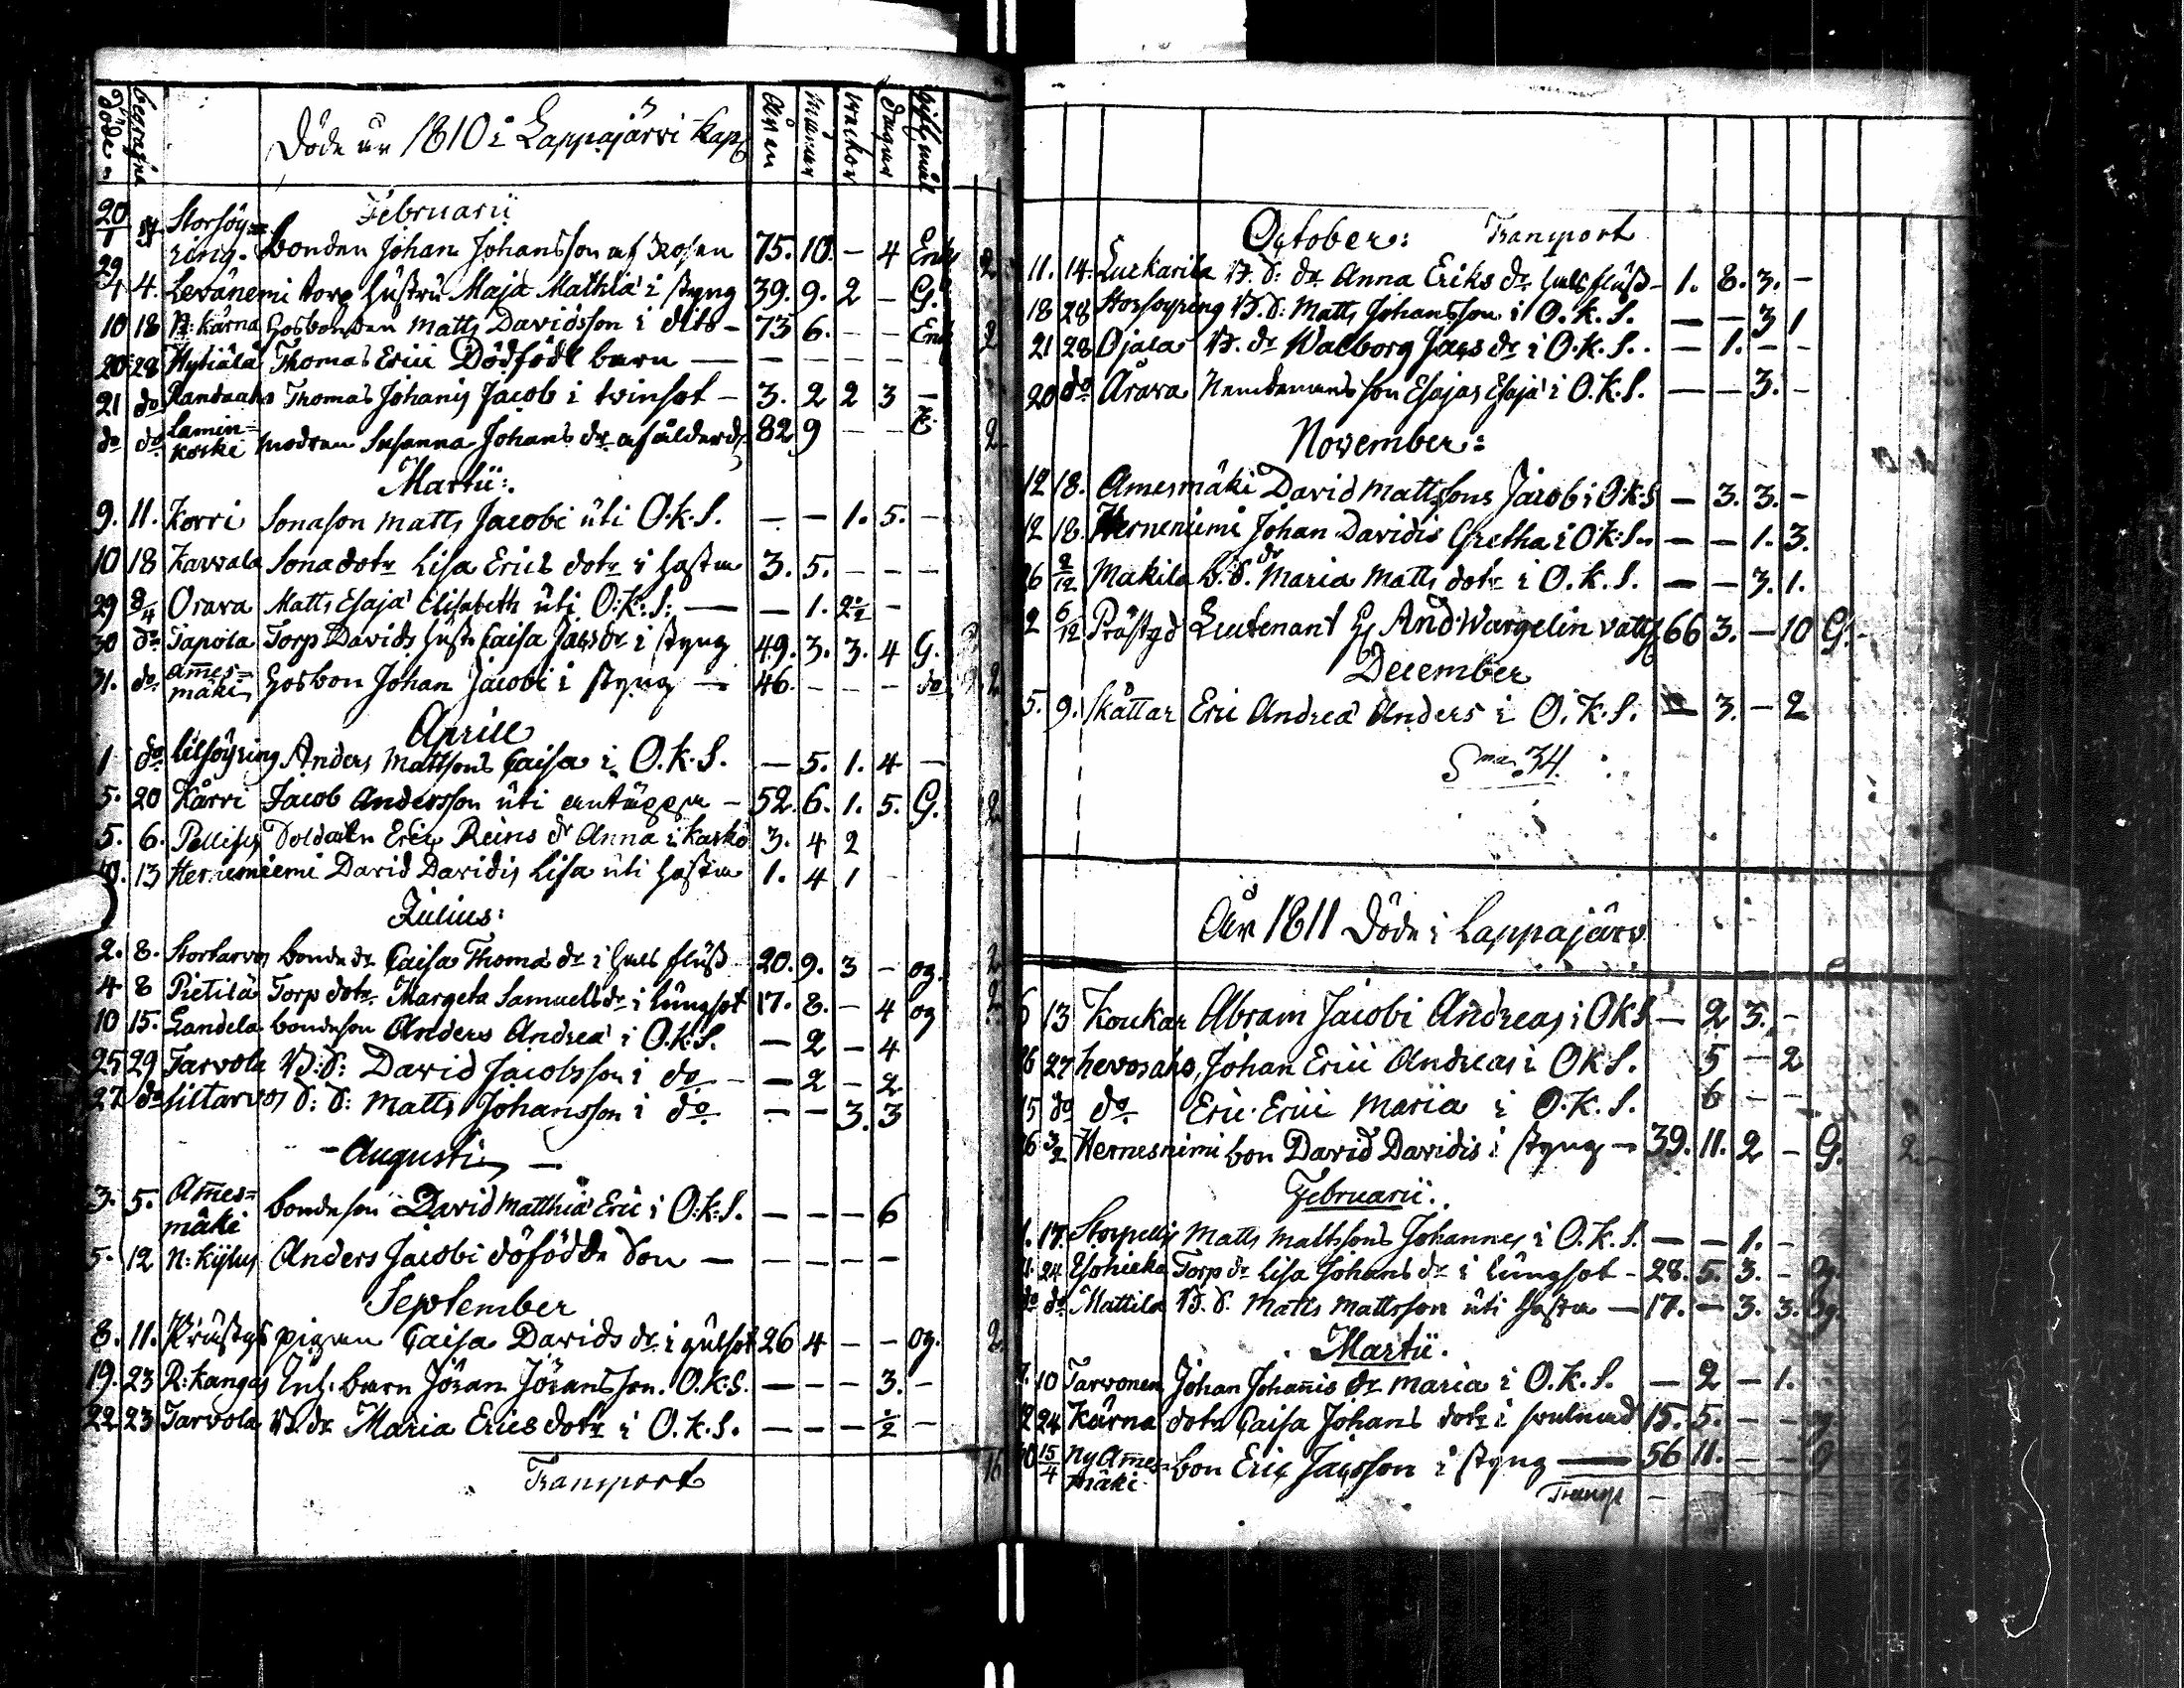 döde. begrafne Döde år 1810 i Lappajärvi Kap Åren månar wekor dagar giftmål
Februarii
20/1 4 Storsöy=
ring. bonden Johan Johansson af Rosen 75. 10. - 4 Enk 2
29/1 4. Levänemi torp hustru Maja Mathiæ i styng 39. 9. 2 - G.
10 18 N: kärna Gosbonden Matts Davidsson i dito - 73 6. - - Enk 2
20 28 Hytiälä Thomas Erici Dödfödt barn - - - - -
21 do Randaaho Thomas Johanis Jacob i tvinsot - 3. 2 2 3 -
do do Lamin=
koski modren Susanna Johans dr af ålderd. 82 9 - - E. 2
Martii:
9. 11. Korri Sonason Matts Jacobi uti O.k.S. - - 1. 5. -
10 18 Karvala Sonadotr Lisa Erics dotr i hosta 3. 5. - - -
29 8/4 Orava Matts Esajæ Elisabeth uti O.k.S: - - 1. 2½ -
30 do Tapola Torp Davids hustr Caisa Jacsdr i styng 49. 3. 3. 4 G.
31. do Ames=
mäki Gosbon Johan Jacobi i styng - 46. - - - do 2
Aprill
1 do Lilsöyring Anders Mattsons Caisa i O.k.S. - 5. 1. 4 -
5. 20 Kärri Jacob Andersson uti - 52. 6. 1. 5. G. 2
5. 6. Pellises Soldaten Eric Reins dr Anna i 3. 4 2
10. 13 Hernesniemi David Davidis Lisa uti hosta 1. 4 1 -
Julius:
2. 8. Stortarvos bonde dr Caisa Thomæ dr i hals fluss 20. 9. 3 - og. 2
4 8 Pietilä Torp dotr Margeta Samuelsdr i lungsot 17. 8. - 4 og 2
10 15. Landela bondeson Anders Andreæ i O.k.S. - 2 - 4
25 29 Tarvola B: S: David Jacobsson i do - - 2 - 2
27 do Liltarvos B: S: Matts Johansson i do - - 3. 3
- Augusti -
3. 5. Ames=
mäki bondeson David Matthiæ Eric i O.k.S. - - - 6
5. 12 N: Kylus Anders Jacobi döfödde Son - - - - -
September
8. 11. Prästgd pigan Caisa Davids dr i gulsot 26 4 - - og. 2
19. 23 R: kangas Inh. barn Jöran Jöransson. O.k.S. - - - 3. -
22 23 Tarvola B. dr Maria Erics dotr i O.k.S. - - - ½ -
Transport 16
October: Transport
11. 14. Luckarila B. S: dr Anna Eriks dr hals fluss - 1. 8. 3. -
18 28 Storsoyring B. S: Matts Johansson i O.k.S. - - 3 1
21 28 Ojala B. dr Walborg Jacs dr i O.k.S. - 1. - -
20 do Arava Nemdemans son Esajas Esajæ i O.k.S. - - 3. -
November:
12 18. Amesmäki David Mattssons Jacob i O.k.S - 3. 3. -
12 18. Hernenïemi Johan Davidis Gretha i O.k.S. - - 1. 3.
26 2/12 Makila B. S. dr Maria Matts dotr i O.k.S. - - 3. 1.
2 6/12 Prästgd Lieutenant H And: Wargelin vatts 66 3. - 10 G.
December
5. 9. Skåttar Eric Andreæ Anders i O.k.S. - 3. - 2
Sma 34.
År 1811 Döde i Lappajärv
6 13 Koukar Abram Jacobi Andreas i OkS - 2 3. -
26 27 hevosaho, Johan Erici Andreas i OkS. 5 - 2
15 do do Eric Erici Maria i O.k.S. 6 - -
26 3/2 Hernesnimi bon David Davidis i styng - 39. 11. 2 - G. 2
Februarii.
1. 17. Storpellis Matts Mattsons Johannes i O.k.S. - - 1. -
11. 24 Esohieka Torp dr Lisa Johans dr i lungsot - 28. 5. 3. - og.
do do Mattila B. S. Matts Mattsson uti hosta - 17. - 3. 3. og.
Martii.
7. 10 Tarvonen Johan Johanis dr Maria i O.k.S. - 2 - 1.
12 24 Kärna dotr Caisa Johans dotr i 15. 5. - - og.
10 15/4 Ny Ames=
mäki. bon Eric Jacsson i styng - 56 11. - - G
Transp